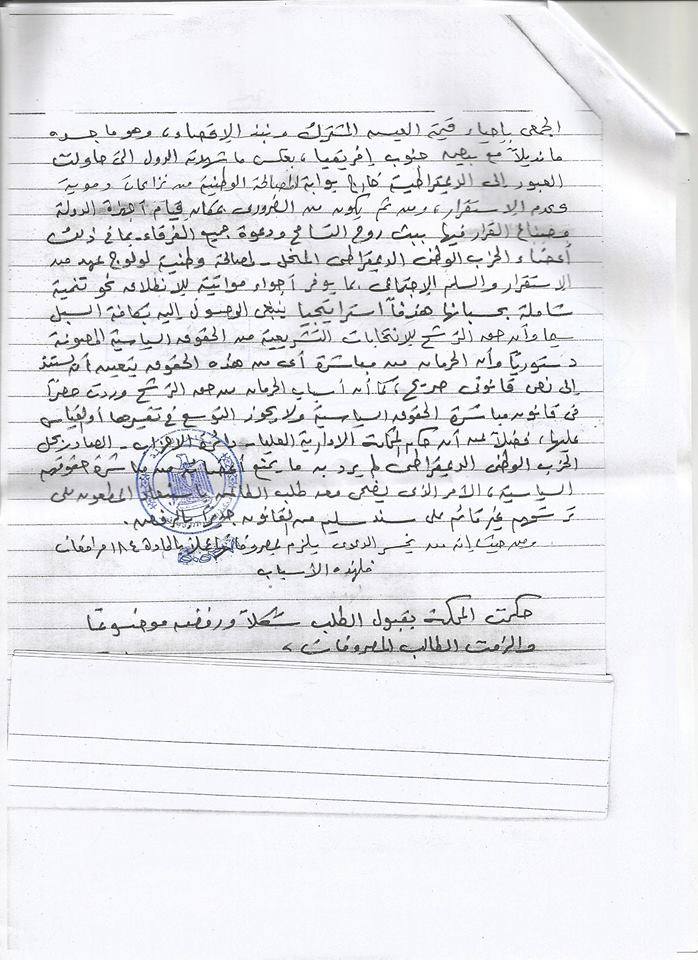 الجمعى بإحياء قيمة العيش المشترك ونبذ الإقصاء، وهو ما جسده
مانديلا مع بيض جنوب إفريقيا، بعكس ما شهدته الدول التى حاولت
العبور إلى الديمقراطية خارج بوابة المصالحة الوطنية من نزاعات دموية
وعدم الاستقرار، ومن ثم يكون من الضرورى بمكان قيام أجهزة الدولة
وصناع القرار فيها ببث روح التسامح ودعوة جميع الفرقاء بما فى ذلك
أعضاء الحزب الوطنى الديمقراطى المنحل لمصالحة وطنية لولوج عهد من
الاستقرار والسلم الاجتماعى بما يوفر أجواء مواتية للانطلاق نحو تنمية
شاملة بحسبانها هدفاً استراتيجياً ينبغى الوصول إليه بكافة السبل
سيما وأن حق الترشح للانتخابات التشريعية من الحقوق السياسية المصونة
دستورياً وأن الحرمان من مباشرة أى من هذه الحقوق يتعين أن يستند
إلى نص قانونى صريح، كما أن أسباب الحرمان من حق الترشح وردت حصراً
فى قانون مباشرة الحقوق السياسية ولا يجوز التوسع فى تفسيرها أو القياس
عليها، فضلاً عن أن حكم المحكمة الإدارية العليا - دائرة الأحزاب - الصادر بحل
الحزب الوطنى الديمقراطى لم يرد به ما يمنع أعضائه من مباشرة حقوقهم
السياسية، الأمر الذى يضحى معه طلب الطاعن باستبعاد المطعون على
ترشحهم غير قائم على سند سليم من القانون جديراً بالرفض.
ومن حيث إنه من يخسر الدعوى يلزم بمصروفاتها عملاً بالمادة ١٨٤ مرافعات
فلهذه الأسباب
حكمت المحكمة بقبول الطلب شكلاً ورفضه موضوعاً
وألزمت الطالب المصروفات،